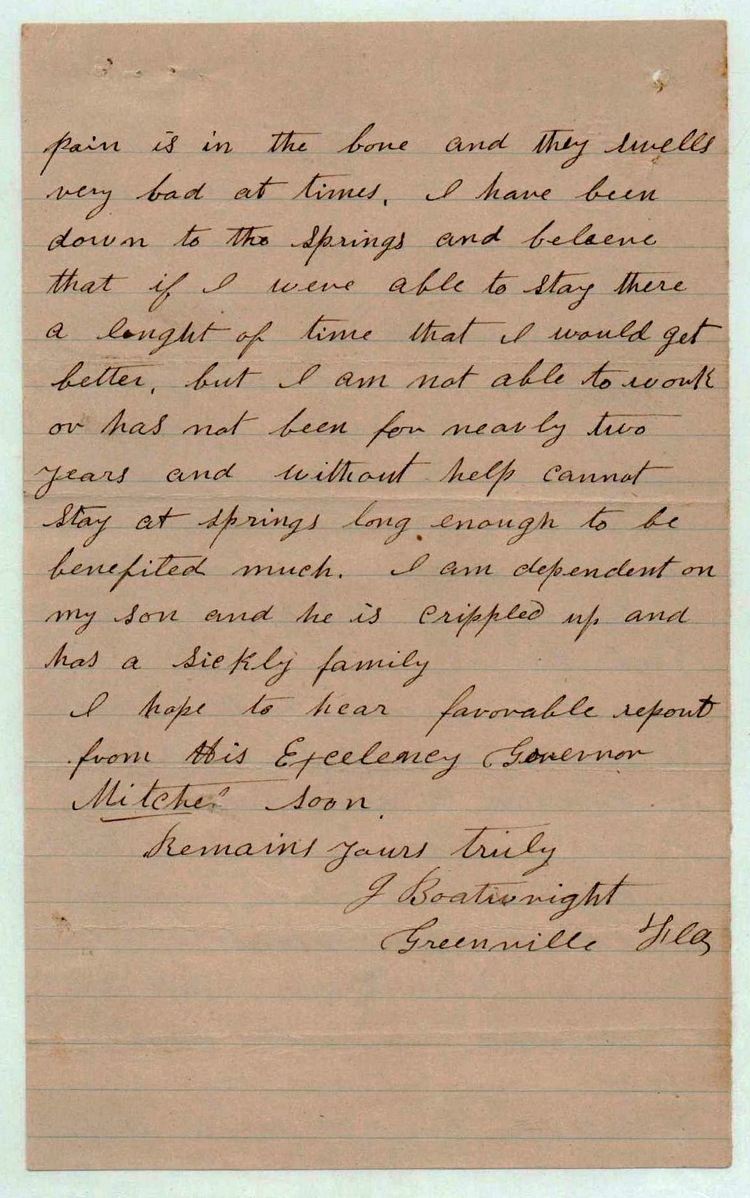 pain is in the bone and they swells
very bad at times. I have been
down to the springs and beleeve
that if I were able to stay there
a lenght of time that I would get
better, but I am not able to work
or has not been for nearly two
years and without help cannot
stay at springs long enough to be
benefited much. I am dependent on
my son and he is crippled up and
has a sickly family
I hope to hear favorable report
from His Excelency Governor
Mitchel soon.
Remains yours truly
J Boatwright
Greenville Fla